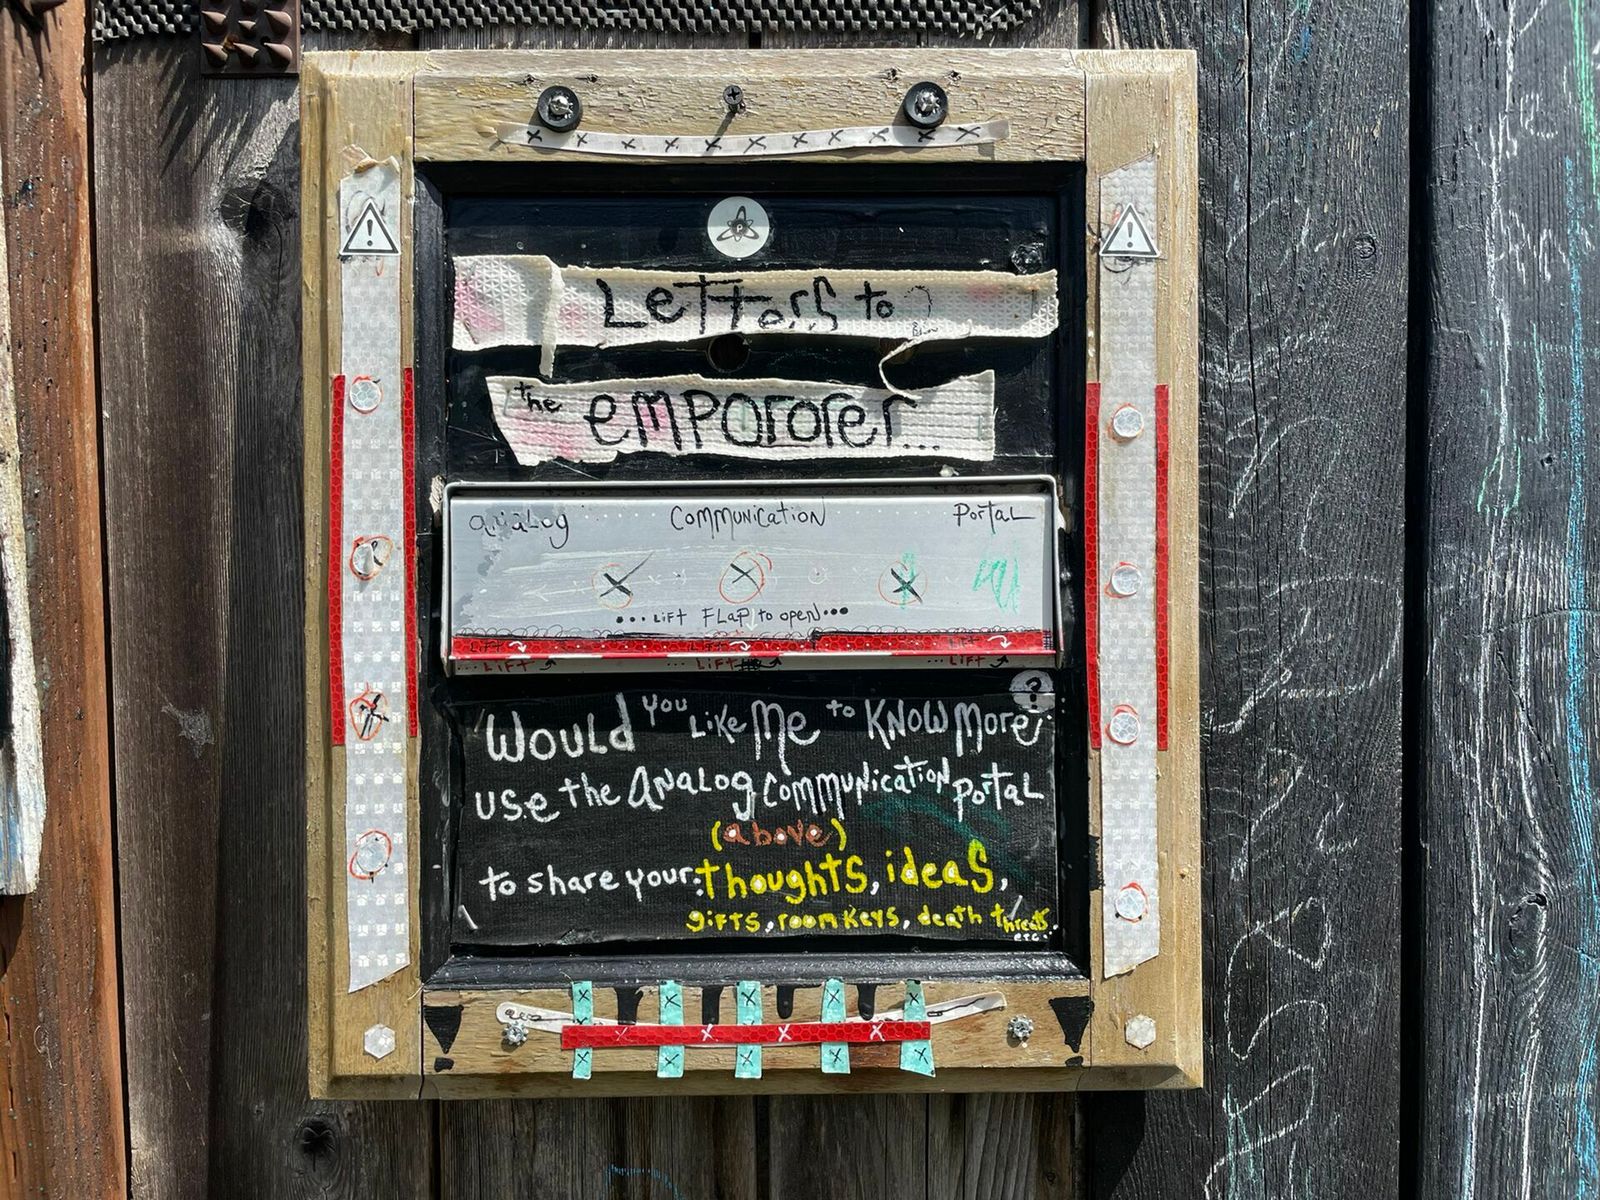 LeTTers to
the emPororer...
analog communication Portal
...Lift FLaP to open...
Lift Lift Lift
...Lift ...Lift ...Lift
?
Would you Like Me to KNOW More
use the analog communication portal
(above)
to share your: thoughts, ideas,
gifts, room keys, death threats
etc.